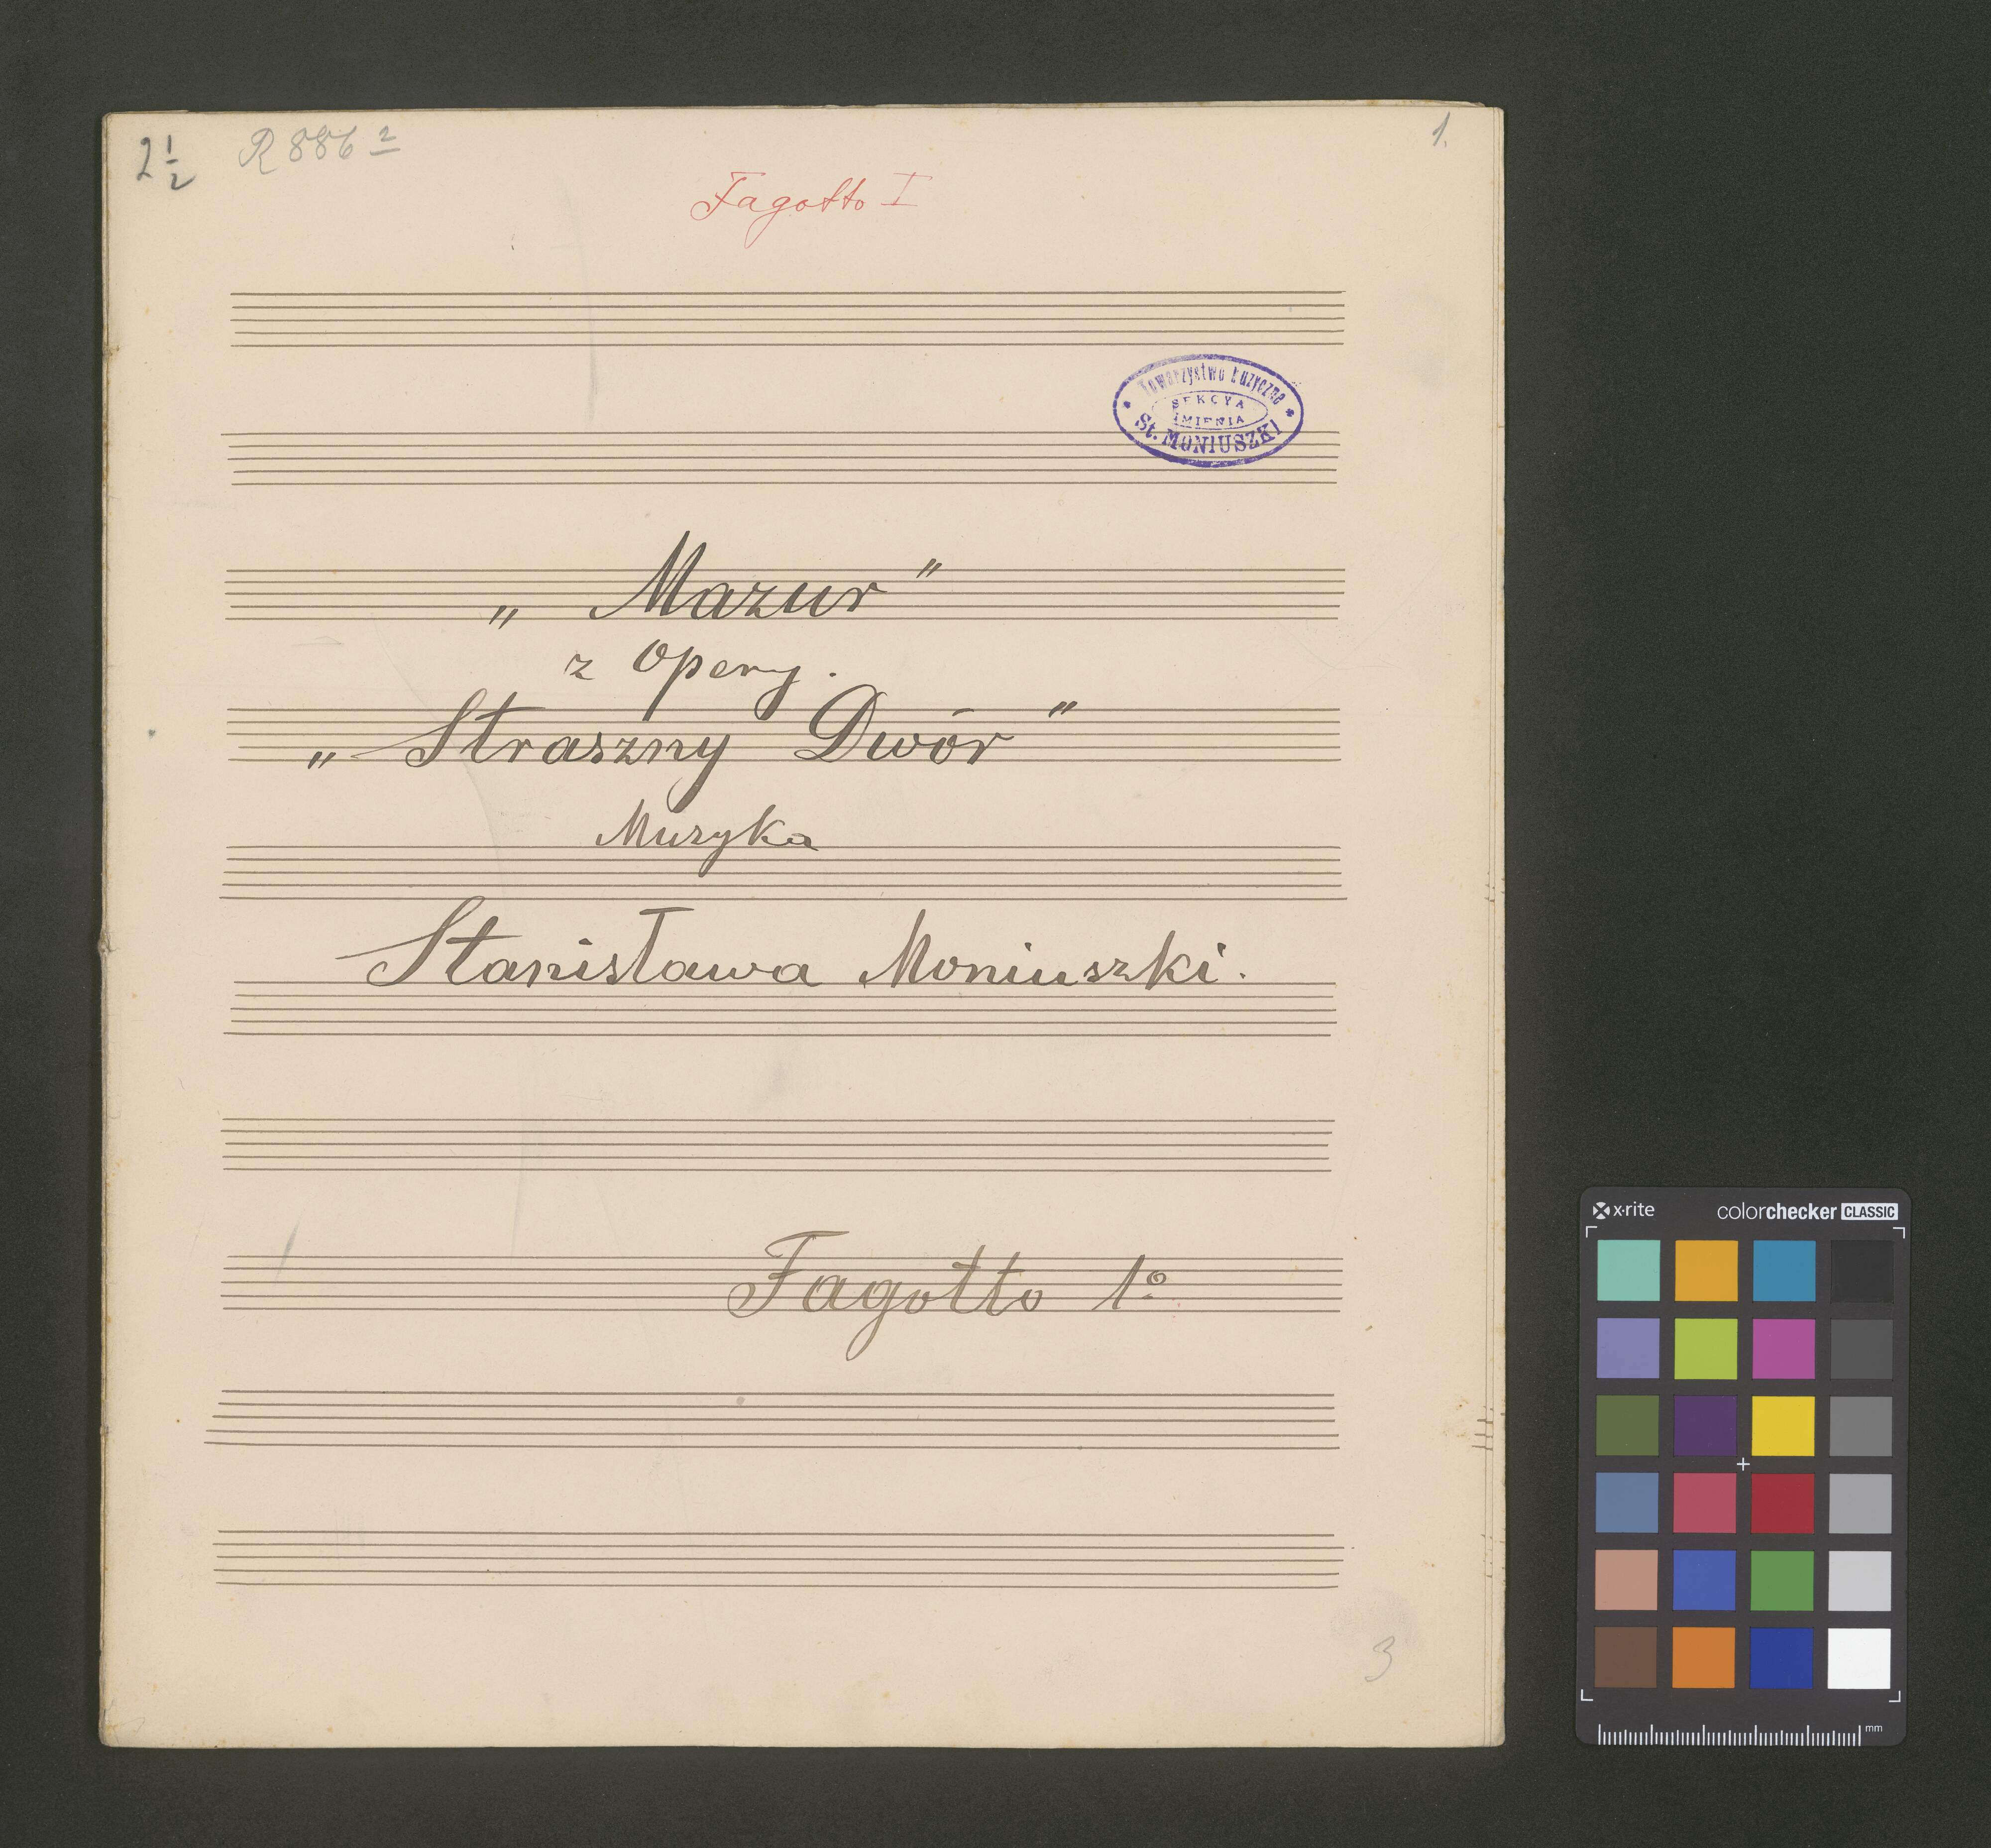 2 1/2 R 886 2 1.
Fagotto I
Towarzystwo Muzyczne
SEKCYA
IMIENIA
St. MONIUSZKI
„ Mazur "
z Opery.
„ Straszny Dwór "
Muzyka
Stanisława Moniuszki.
Fagotto 1º
3
x·rite colorchecker CLASSIC
mm